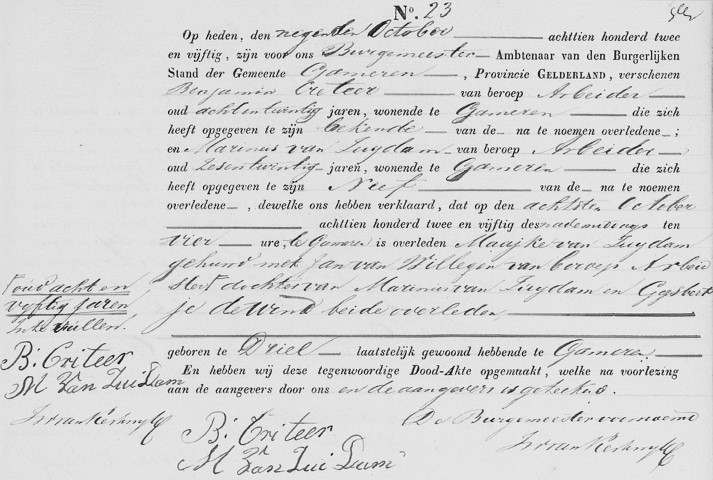 No. 23
Op heden, den negenden October achttien honderd twee
en vijftig, zijn voor ons Burgemeester Ambtenaar van den Burgerlijken
Stand der Gemeente Gameren, Provincie GELDERLAND, verschenen
Benjamin Criteer van beroep Arbeider
oud achtentwintig jaren, wonende te Gameren die zich
heeft opgegeven te zijn bekende van de na te noemen overledene ;
en Marinus van Zuydam van beroep Arbeider
oud Zesentwintig jaren, wonende te Gameren die zich
heeft opgegeven te zijn Neef van de na te noemen
overledene , dewelke ons hebben verklaard, dat op den achtsten October
achttien honderd twee en vijftig des nademiddags ten
vier ure, te Gameren is overleden Maayke van Zuydam
gehuwd met Jan van Willegen van beroep Arbeid
ster dochter van Marinus van Zuydam en Gysbert
je de Wend beide overleden
oud acht en
vyftig jaren
geboren te Driel laatstelijk gewoond hebbende te Gameren.
En hebben wij deze tegenwoordige Dood-Akte opgemaakt, welke na voorlezing
aan de aangevers door ons en de aangevers is geteekend.
B. Criteer
M van Zui Dam
De Burgemeester voornoemd
B. Criteer
M van Zui Dam